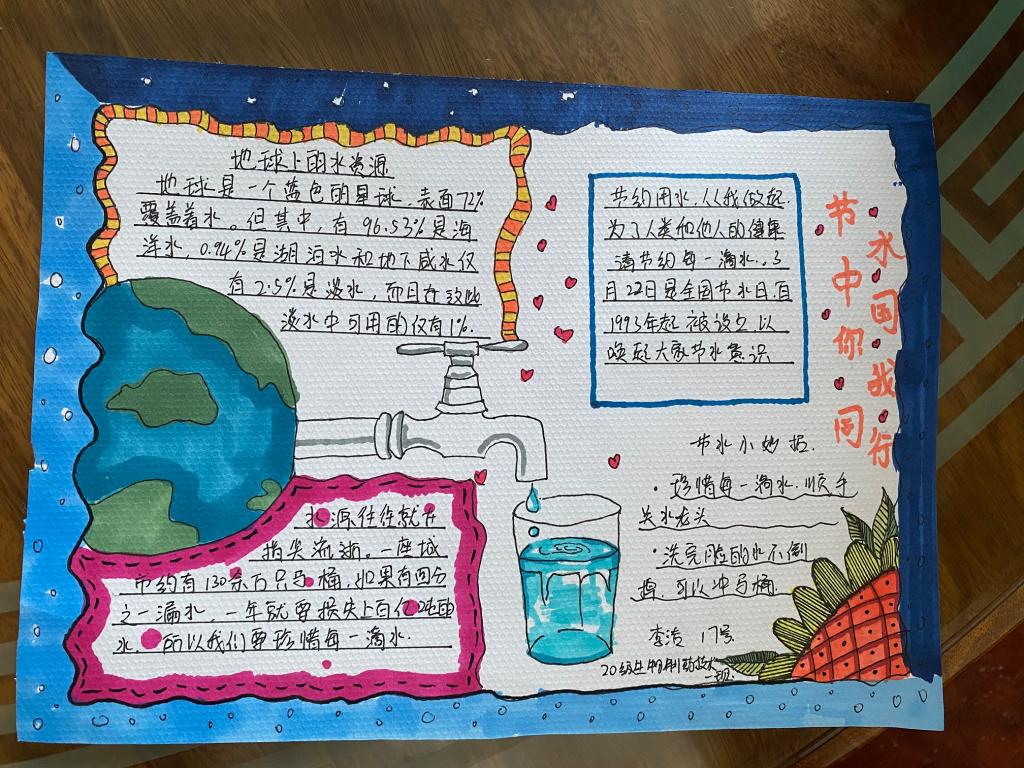 地球上的水资源
地球是一个蓝色的星球，表面72%
覆盖着水。但其中，有96.53%是海
洋水，0.94%是湖泊水和地下咸水仅
有2.5%是淡水，而且在这些
淡水中可用的仅有1%.
节约用水，从我做起.
为了人类和他人的健康
请节约每一滴水.，3
月22日是全国节水日，自
1993年起被设立以
唤起大家节水意识
节水中国
你我同行
节水小妙招.
·珍惜每一滴水.顺手
关水龙头
·洗完脸的水不倒
掉，可以冲马桶
水源往往就在
指尖流逝。一座城
市约有130余万只马桶，如果有四分
之一漏水，一年就要损失上百亿吨的
水，所以我们要珍惜每一滴水.
李浩 17号
20级生物制药技术
一班